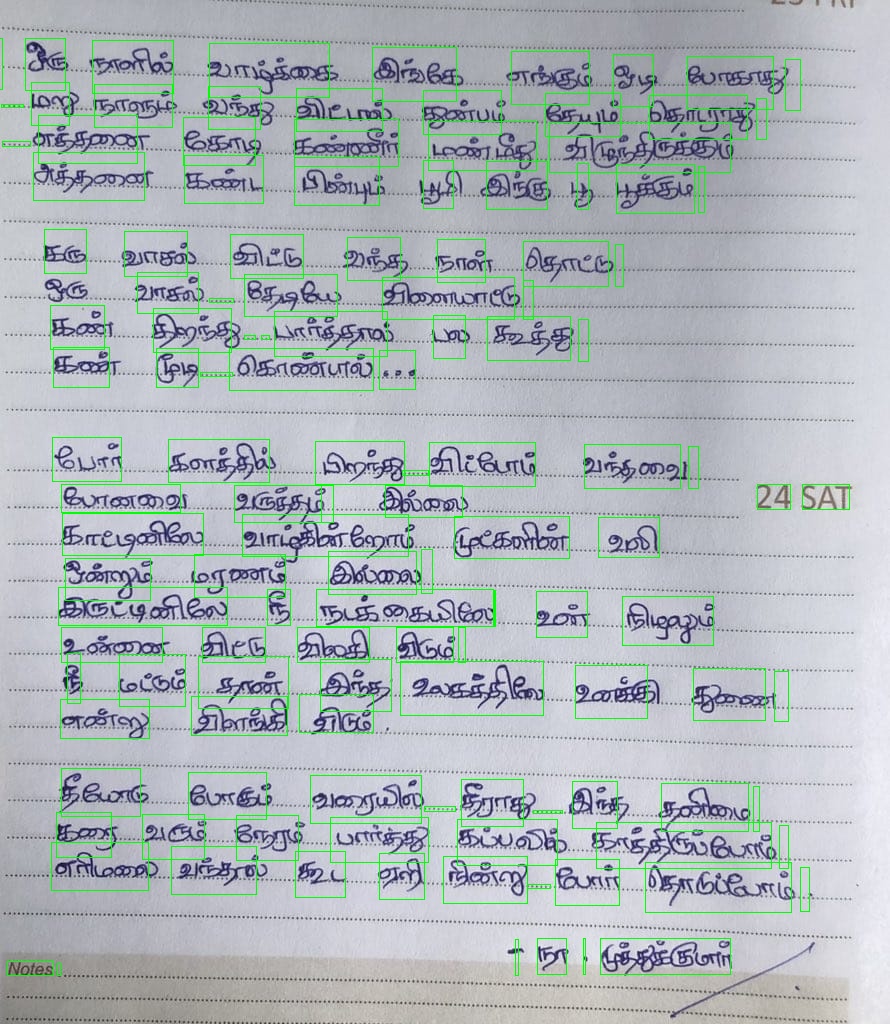 23 FRI
ஒரு நாளில் வாழ்க்கை இங்கே எங்கும் ஓடி போகாது
மறு நாளும் வந்து விட்டால் துன்பம் தேயும் தொடராது
எத்தனை கோடி கண்ணீர் மண்மீது விழுந்திருக்கும்
அத்தனை கண்ட பின்பும் பூமி இங்கு பூ பூக்கும்
கரு வாசல் விட்டு வந்த நாள் தொட்டு
ஒரு வாசல் தேடியே விளையாட்டு
கண் திறந்து பார்த்தால் பல கூத்து
கண் மூடி கொண்டால்...
போர் களத்தில் பிறந்து விட்டோம் வந்தவை
போனவை வருத்தம் இல்லை
காட்டினிலே வாழ்கின்றோம் முட்களின் வலி
ஒன்றும் மரணம் இல்லை
இருட்டினிலே நீ நடக்கையிலே உன் நிழலும்
உன்னை விட்டு விலகி விடும்
நீ மட்டும் தான் இந்த உலகத்திலே உனக்கு துணை
என்று விளங்கி விடும்.
தீயோடு போகும் வரையில் தீராது இந்த தனிமை
கரை வரும் நேரம் பார்த்து கப்பலில் காத்திருப்போம்
எரிமலை வந்தால் கூட ஏறி நின்று போர் தொடுப்போம்.
24 SAT
- நா. முத்துக்குமார்
Notes